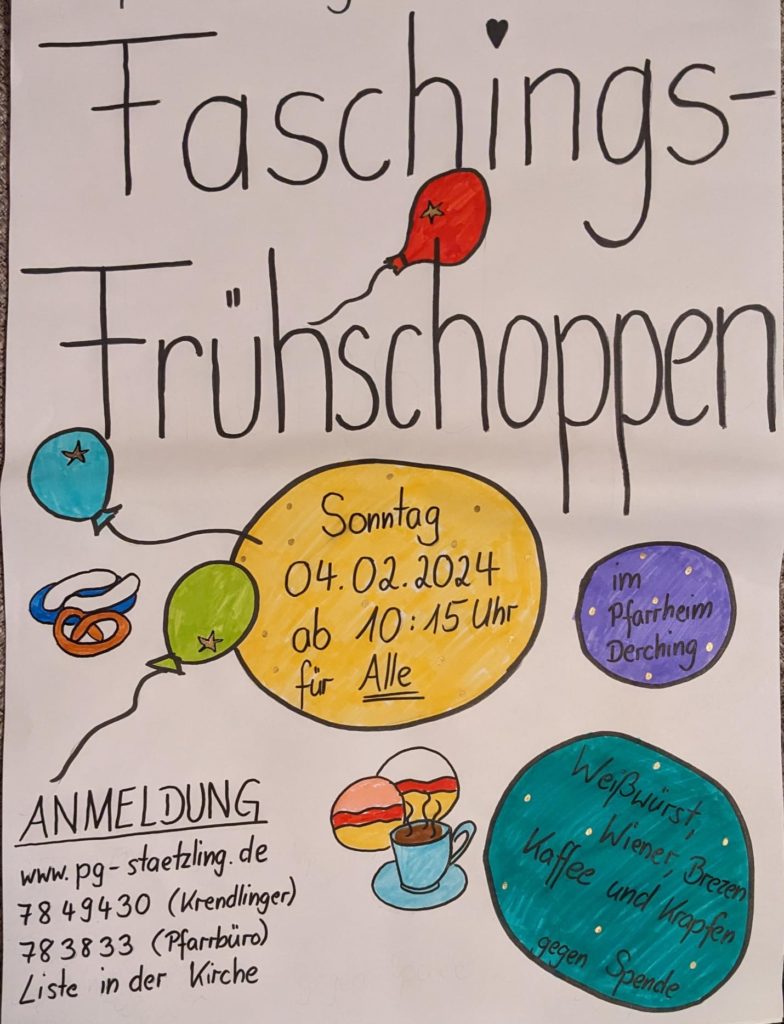 Faschings-
Frühschoppen
Sonntag
04.02.2024
ab 10:15 Uhr
für Alle
im
Pfarrheim
Derching
ANMELDUNG
www.pg-staetzling.de
7849430 (Krendlinger)
783833 (Pfarrbüro)
Liste in der Kirche
Weißwürst,
Wiener, Brezen
Kaffee und Krapfen
gegen Spende